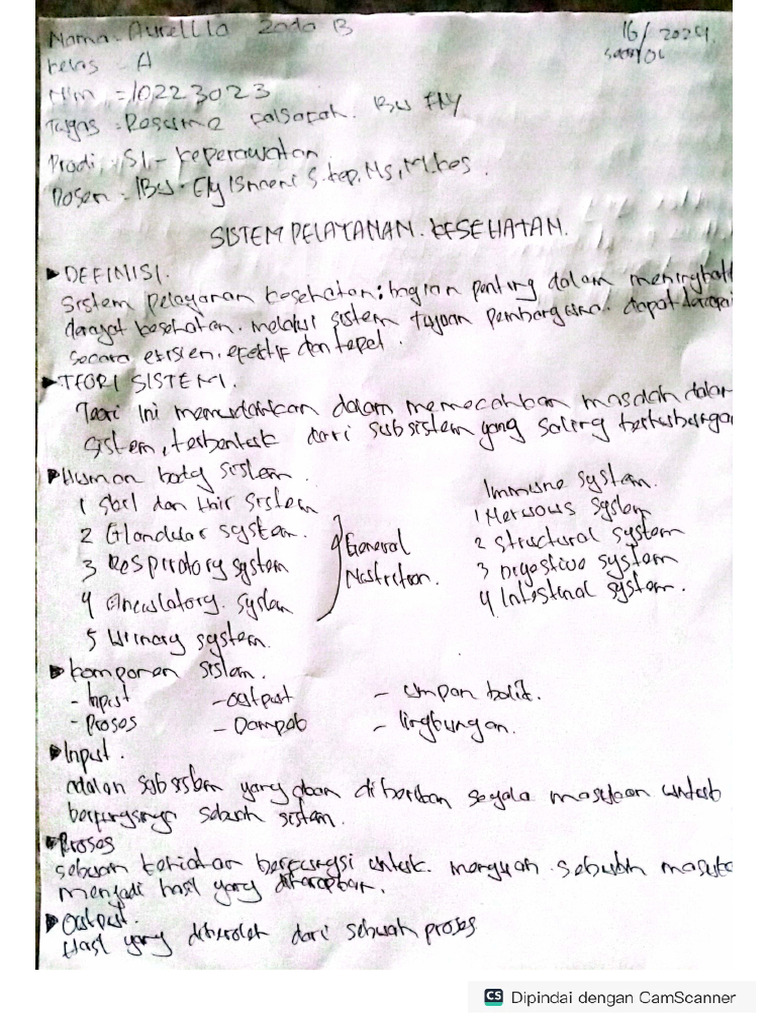 Nama : Aurellia Zada B
16/ 2024
Kelas : A
Nim : 10223023
Tugas : Resume Falsafah. Bu Ely
Prodi : S1 - Keperawatan
Dosen : IBu. Ely ISnaeni S.kep, Ns, M.kes.
SISTEM PELAYANAN KESEHATAN.
DEFINISI.
Sistem pelayanan kesehatan : bagian penting dalam meningkat
derajat kesehatan. melalui sistem tujuan pembangunan dapat dicapai
secara efisien, efektif dan tepat.
TEORI SISTEM.
Teori ini memudahkan dalam memecahkan masalah dalam
sistem, terbentuk dari subsistem yang saling berhubungan
Human body sistem.
1 Skil dan Hair sistem
2 Glandular system.
3 Respiratory system
4 system
5 Urinary system.
General
Nutrition.
Immune system.
1 Nervous system
2 Structural system
3 Digestive system
4 Intestinal system.
Komponen sistem.
- Input - output - umpan balik.
- Proses - Dampak - lingkungan.
Input.
adalah subsistem yang akan diberikan segala masukan untuk
berfungsinya sebuah sistem.
Proses
sebuah kegiatan berfungsi untuk. sebuah
menjadi hasil yang diharapkan.
Output.
Hasil yang diperoleh dari sebuah proses
CS Dipindai dengan CamScanner